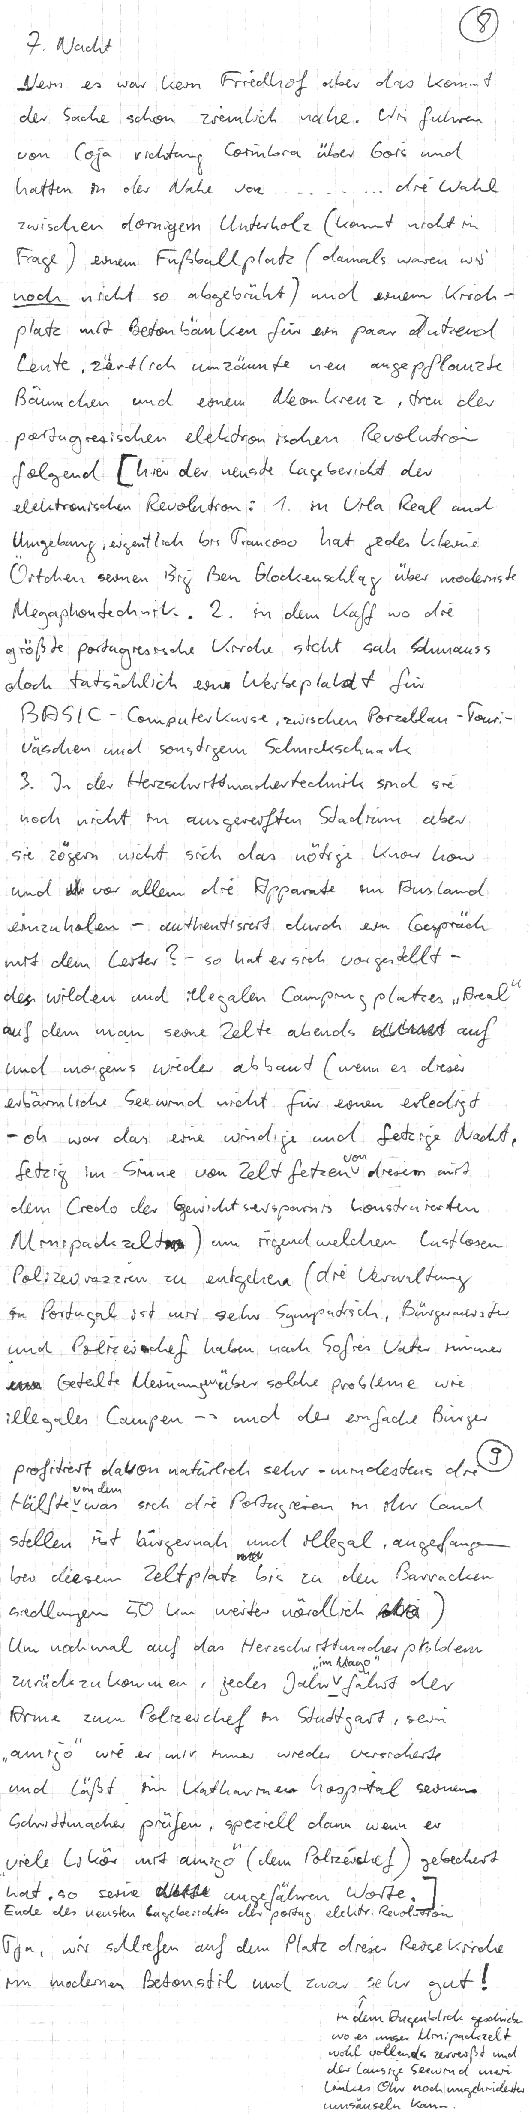 8
7. Nacht
Nein es war kein Friedhof aber das kommt
der Sache schon ziemlich nahe. Wir fuhren
von Coja richtung Coimbra über Gois und
hatten in der Nähe von .......... die Wahl
zwischen dornigem Unterholz (kommt nicht in
Frage) einem Fußballplatz (damals waren wir
noch nicht so abgebrüht) und einem Kirch-
platz mit Betonbänken für ein paar Dutzend
Leute, zärtlich umzäunte neu angepflanzte
Bäumchen und einem Neonkreuz, treu der
portugiesischen elektronischen Revolution
folgend [hier der neuste Lagebericht der
elektronischen Revolution: 1. in Vila Real und
Umgebung, eigentlich bis Trancoso hat jedes kleine
Örtchen seinen Big Ben Glockenschlag über modernste
Megaphontechnik. 2. in dem Kaff wo die
größte portugiesische Kirche steht sah Schmauss
doch tatsächlich ein Werbeplakat für
BASIC-Computerkurse, zwischen Porzellan-Touri-
väschen und sonstigem Schnickschnack
3. In der Herzschrittmachertechnik sind sie
noch nicht im ausgereiften Stadium aber
sie zögern nicht sich das nötige know how
und vor allem die Apparate im Ausland
einzuholen - authentisiert durch ein Gespräch
mit dem Leiter? - so hat er sich vorgestellt -
des wilden und illegalen Campingplatzes „Areal"
auf dem man seine Zelte abends auf
und morgens wieder abbaut (wenn es dieser
erbärmliche Seewind nicht für einen erledigt
- oh war das eine windige und fetzige Nacht,
fetzig im Sinne von Zeltfetzen von diesem mit
dem Credo der Gewichtsersparnis konstruierten
Minipackzelt) um irgendwelchen lustlosen
Polizeirazzien zu entgehen (die Verwaltung
in Portugal ist mir sehr sympatisch, Bürgermeister
und Polizeichef haben nach Sofies Vater immer
geteilte Meinungen über solche probleme wie
illegales Campen -> und der einfache Bürger
9
profitiert davon natürlich sehr - mindestens die
Hälfte von dem was sich die Portugiesen in ihr Land
stellen ist bürgernah und illegal, angefangen
bei diesem Zeltplatz bis zu den Barracken
siedlungen 50 km weiter nördlich)
Um nochmal auf das Herzschrittmacherproblem
zurückzukommen, jedes Jahr „im Mayo" fährt der
Arme zum Polizeichef in Stuttgart, sein
„amigo" wie er mir immer wieder versicherte
und läßt im Katharinenhospital seinen
Schrittmacher prüfen, speziell dann wenn er
„viele Likör mit amigo" (dem Polizeichef) gebechert
hat, so seine ungefähren Worte.]
Ende des neusten Lageberichtes der portug. elektr. Revolution
Tja, wir schliefen auf dem Platz dieser Reisekirche
im modernen Betonstil und zwar sehr gut!
in dem Augenblick geschrieben
wo es unser Minipackzelt
wohl vollends zerreißt und
der lausige Seewind mein
linkes Ohr noch ungehinderter
umsäuseln kann.